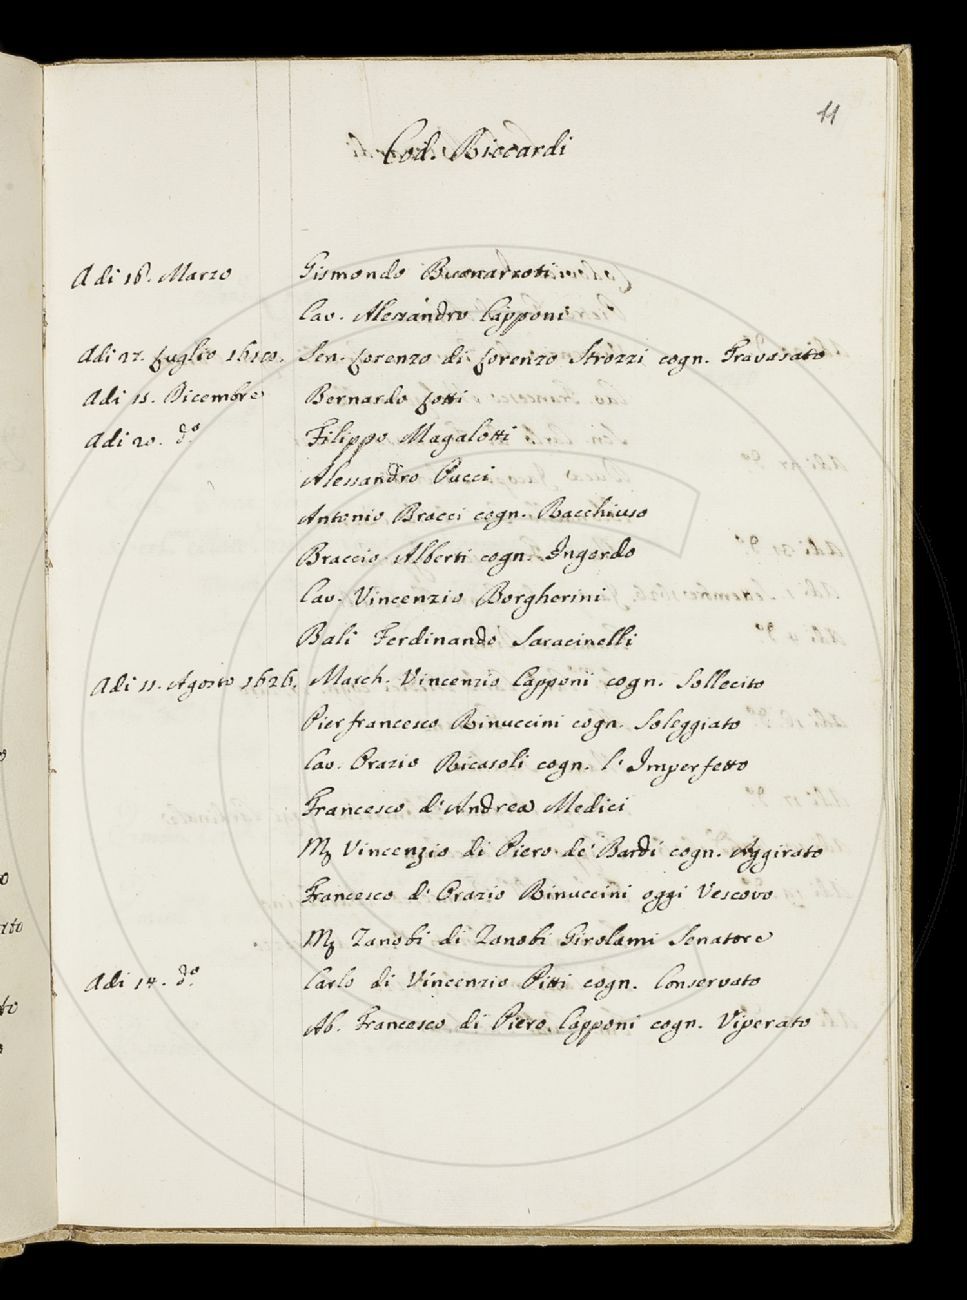 11
Cod. Riccardi
Adi 18. Marzo Gismondo Buonarroti
Cav. Alessandro Capponi
Adi 27. Luglio Sen. Lorenzo di Lorenzo Strozzi cogn. Travasato
Adi 15. Dicembre Bernardo Lotti
Adi 20. do. Filippo Magalotti
Alessandro Pucci
Antonio Bracci cogn. Bacchiuso
Braccio Alberti cogn. Ingordo
Cav. Vincenzio Borgherini
Balì Ferdinando Saracinelli
Adi 11. Agosto 1626. March. Vincenzio Capponi cogn. Sollecito
Pierfrancesco Rinuccini cogn. Soleggiato
Cav. Orazio Ricasoli cogn. l'Imperfetto
Francesco d'Andrea Medici
Mr Vincenzio di Piero de' Bardi cogn. Aggirato
Francesco d'Orazio Rinuccini oggi Vescovo
Mr Zanobi di Zanobi Girolami Senatore
Adi 14. do. Carlo di Vincenzio Pitti cogn. Conservato
Ab. Francesco di Piero Capponi cogn. Viperato